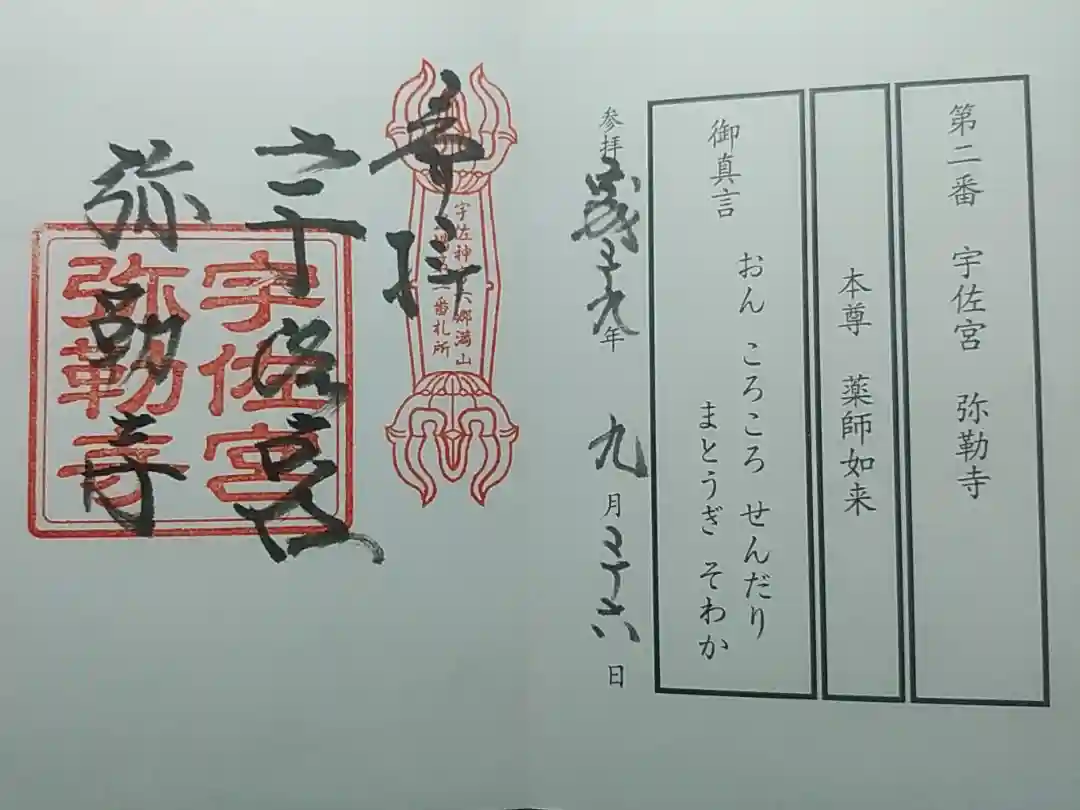 第二番 宇佐宮 弥勒寺
本尊 薬師如来
御真言
おん ころころ せんだり
まとうぎ そわか
参拝 平成二十九年 九月二十六日
奉拝
宇佐神宮六郷満山
二番札所
弥勒寺
宇佐宮
弥勒寺